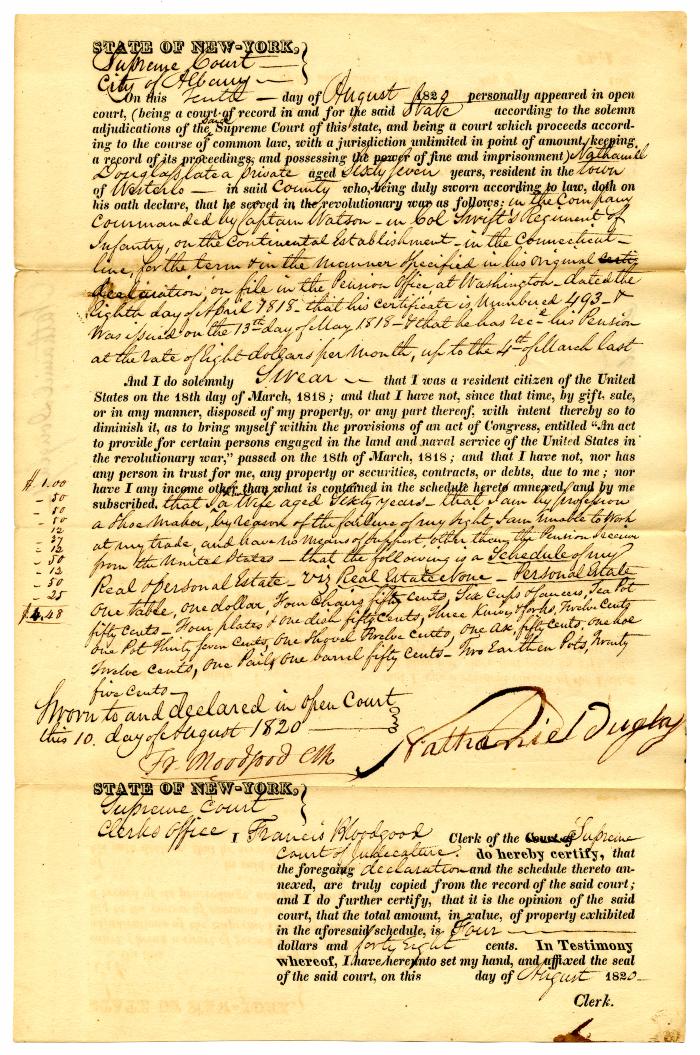 STATE OF NEW-YORK,
Supreme Court
City of Albany
On this Tenth day of August 1820 personally appeared in open
court, (being a court of record in and for the said State according to the solemn
adjudications of the said Supreme Court of this state, and being a court which proceeds accord-
ing to the course of common law, with a jurisdiction unlimited in point of amount, keeping
a record of its proceedings, and possessing the power of fine and imprisonment) Nathaniel
Douglass late a private aged Sixty seven years, resident in the town
of Westerlo in said County who, being duly sworn according to law, doth on
his oath declare, that he served in the revolutionary war as follows: in the Company
commanded by Captain Watson - in Col Swift's Regiment of
Infantry, on the Continental Establishment - in the Connecticut
line, for the term & in the manner specified in his original
declaration, on file in the Pension Office at Washington - dated the
Eighth day of April 1818 - that his certificate is Numbered 493 - &
was issued on the 13th day of May 1818 - & that he has recd his Pension
at the rate of Eight dollars per month, up to the 4th of March last
And I do solemnly Swear that I was a resident citizen of the United
States on the 18th day of March, 1818; and that I have not, since that time, by gift, sale,
or in any manner, disposed of my property, or any part thereof, with intent thereby so to
diminish it, as to bring myself within the provisions of an act of Congress, entitled "An act
to provide for certain persons engaged in the land and naval service of the United States in
the revolutionary war," passed on the 18th of March, 1818; and that I have not, nor has
any person in trust for me, any property or securities, contracts, or debts, due to me; nor
have I any income other than what is contained in the schedule hereto annexed, and by me
subscribed, that I a Wife aged Sixty years - that I am by profession
a Shoe Maker, by reason of the failure of my Sight, I am unable to work
at my trade, and have no means of support other than the Pension
from the United States - that the following is a Schedule of my
Real & personal Estate - viz Real Estate None - Personal Estate
One table, one dollar, Four Chairs fifty Cents, Six Cups & Saucers, Tea Pot
fifty Cents - Four plates & one dish fifty Cents, Three Knives & forks, Twelve Cents
One Pot Thirty seven Cents, One Shovel Twelve Cents, One Ax fifty Cents, one hoe
Twelve Cents, One Pail, One barrel fifty Cents - Two Earthen Pots, Twenty
five Cents -
$ 1.00
- 50
- 50
- 50
12
- 37
- 12
- 50
- 12
- 50
- 25
$4.48
Sworn to and declared in open Court
this 10. day of August 1820
Fr. Bloodgood Clk
Nathaniel Duglas
STATE OF NEW-YORK,
Supreme Court
Clerks Office
I Francis Bloodgood Clerk of the Court of Supreme
Court of Judicature. do hereby certify, that
the foregoing declaration and the schedule thereto an-
nexed, are truly copied from the record of the said court;
and I do further certify, that it is the opinion of the said
court, that the total amount, in value, of property exhibited
in the aforesaid schedule, is Four
dollars and forty Eight cents. In Testimony
whereof, I have hereunto set my hand, and affixed the seal
of the said court, on this day of August 1820
Clerk.